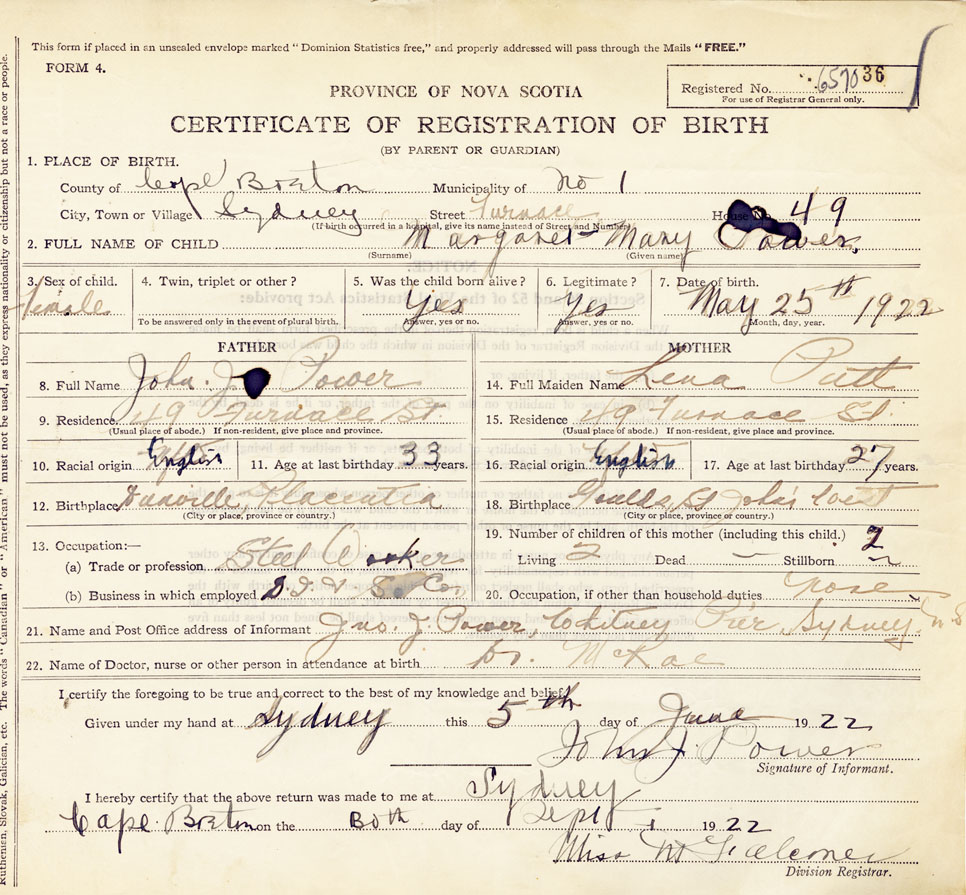 This form if placed in an unsealed envelope marked "Dominion Statistics free," and properly addressed will pass through the Mails "FREE."
FORM 4.
Registered No. 657036
For use of Registrar General only.
PROVINCE OF NOVA SCOTIA
CERTIFICATE OF REGISTRATION OF BIRTH
(BY PARENT OR GUARDIAN)
1. PLACE OF BIRTH.
County of Cape Breton Municipality of No 1
City, Town or Village Sydney Street Furnace House No. 49
(If birth occurred in a hospital, give its name instead of Street and Number)
2. FULL NAME OF CHILD Margaret Mary Power
(Surname) (Given name)
3. Sex of child. 4. Twin, triplet or other? 5. Was the child born alive? 6. Legitimate? 7. Date of birth.
Female Yes Yes May 25th 1922
To be answered only in the event of plural birth. Answer, yes or no. Answer, yes or no. Month, day, year.
FATHER MOTHER
8. Full Name John J. Power 14. Full Maiden Name Lena Putt
9. Residence 49 Furnace St 15. Residence 49 Furnace St.
(Usual place of abode.) If non-resident, give place and province. (Usual place of abode.) If non-resident, give place and province.
10. Racial origin English 11. Age at last birthday 33 years. 16. Racial origin English 17. Age at last birthday 27 years.
12. Birthplace Placentia 18. Birthplace Goulds, St John's West
(City or place, province or country.) (City or place, province or country.)
13. Occupation:— 19. Number of children of this mother (including this child.) 2
(a) Trade or profession Steel Worker Living 2 Dead — Stillborn —
(b) Business in which employed D. I. & S. Co. 20. Occupation, if other than household duties None
21. Name and Post Office address of Informant Jno. J. Power, Whitney Pier, Sydney, N S
22. Name of Doctor, nurse or other person in attendance at birth Dr. McRae
I certify the foregoing to be true and correct to the best of my knowledge and belief.
Given under my hand at Sydney this 5th day of June 1922
John J. Power
Signature of Informant.
I hereby certify that the above return was made to me at Sydney
Cape Breton on the day of Sept 1922
Miss M Falconer
Division Registrar.
Ruthenian, Slovak, Galician, etc. The words "Canadian" or "American" must not be used, as they express nationality or citizenship but not a race or people.